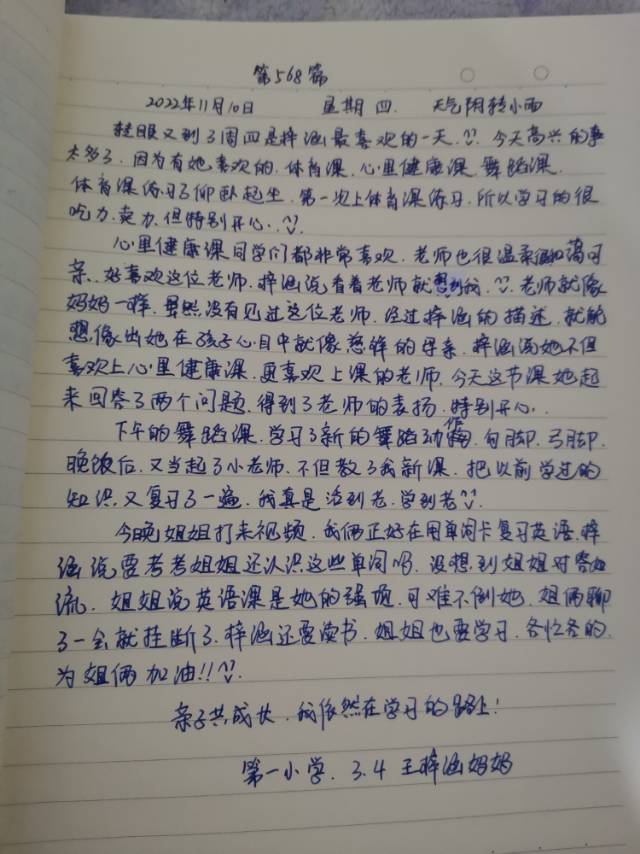 第568篇
2022年11月10日 星期四. 天气阴转小雨
转眼又到了周四是梓涵最喜欢的一天. 今天高兴的事
太多了. 因为有她喜欢的. 体育课. 心里健康课. 舞蹈课.
体育课练习了仰卧起坐. 第一次上体育课练习. 所以学习的很
吃力. 卖力. 但特别开心..
心里健康课同学们都非常喜欢. 老师也很温柔和蔼可
亲. 好喜欢这位老师. 梓涵说看着老师就想到妈. 老师就像
妈妈一样. 虽然没有见过这位老师. 经过梓涵的描述. 就能
想像出她在孩子心目中就像慈祥的母亲. 梓涵说她不但
喜欢上心里健康课. 更喜欢上课的老师. 今天这节课她起
来回答了两个问题. 得到了老师的表扬. 特别开心..
下午的舞蹈课. 学习了新的舞蹈动作. 勾脚. 弓脚.
晚饭后. 又当起了小老师. 不但教了我新课. 把以前学过的
知识. 又复习了一遍. 我真是活到老. 学到老.
今晚姐姐打来视频. 我俩正好在用单词卡复习英语. 梓
涵说要考考姐姐还认识这些单词吗. 没想到姐姐对答如
流. 姐姐说英语课是她的强项. 可难不倒她. 姐俩聊
了一会就挂断了. 梓涵还要读书. 姐姐也要学习. 各忙各的.
为姐俩加油!!
亲子共成长. 我依然在学习的路上!
第一小学. 3.4 王梓涵妈妈